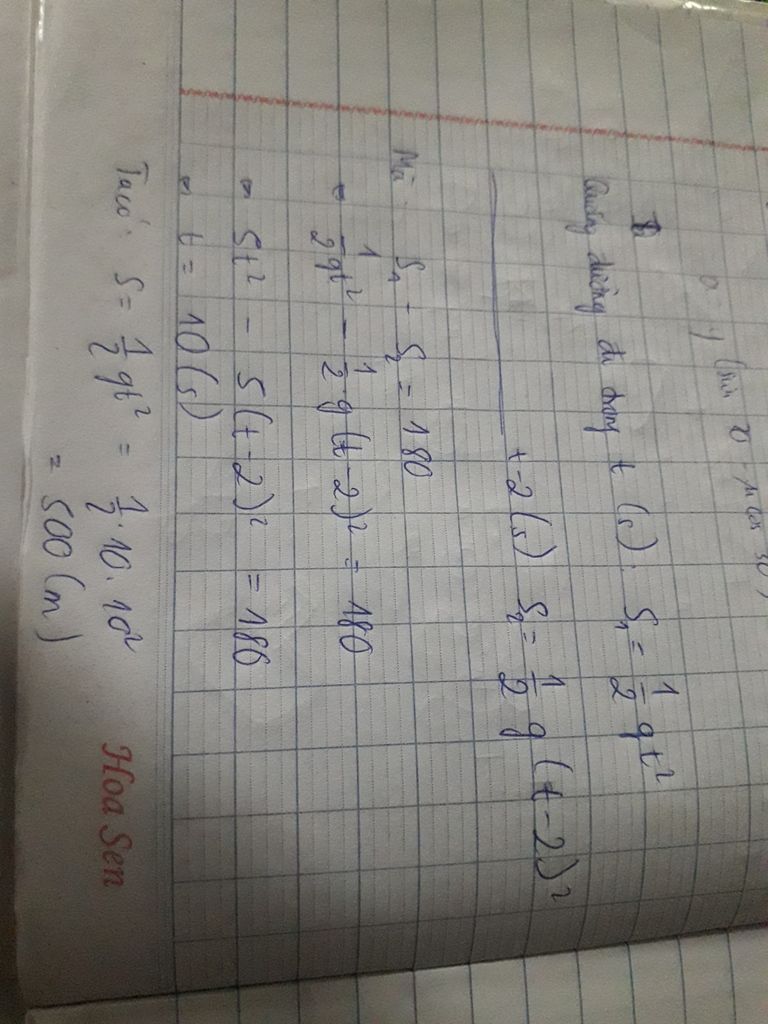 (sin α - μ cos 30)
Quãng đường đi trong t (s). S₁ = 1/2 gt²
t-2(s) S₂ = 1/2 g (t-2)²
Mà S₁ - S₂ = 180
⇔ 1/2 gt² - 1/2 g (t-2)² = 180
⇔ 5t² - 5(t-2)² = 180
⇔ t = 10(s)
Ta có: S = 1/2 gt² = 1/2 . 10 . 10²
= 500 (m)
Hoa Sen